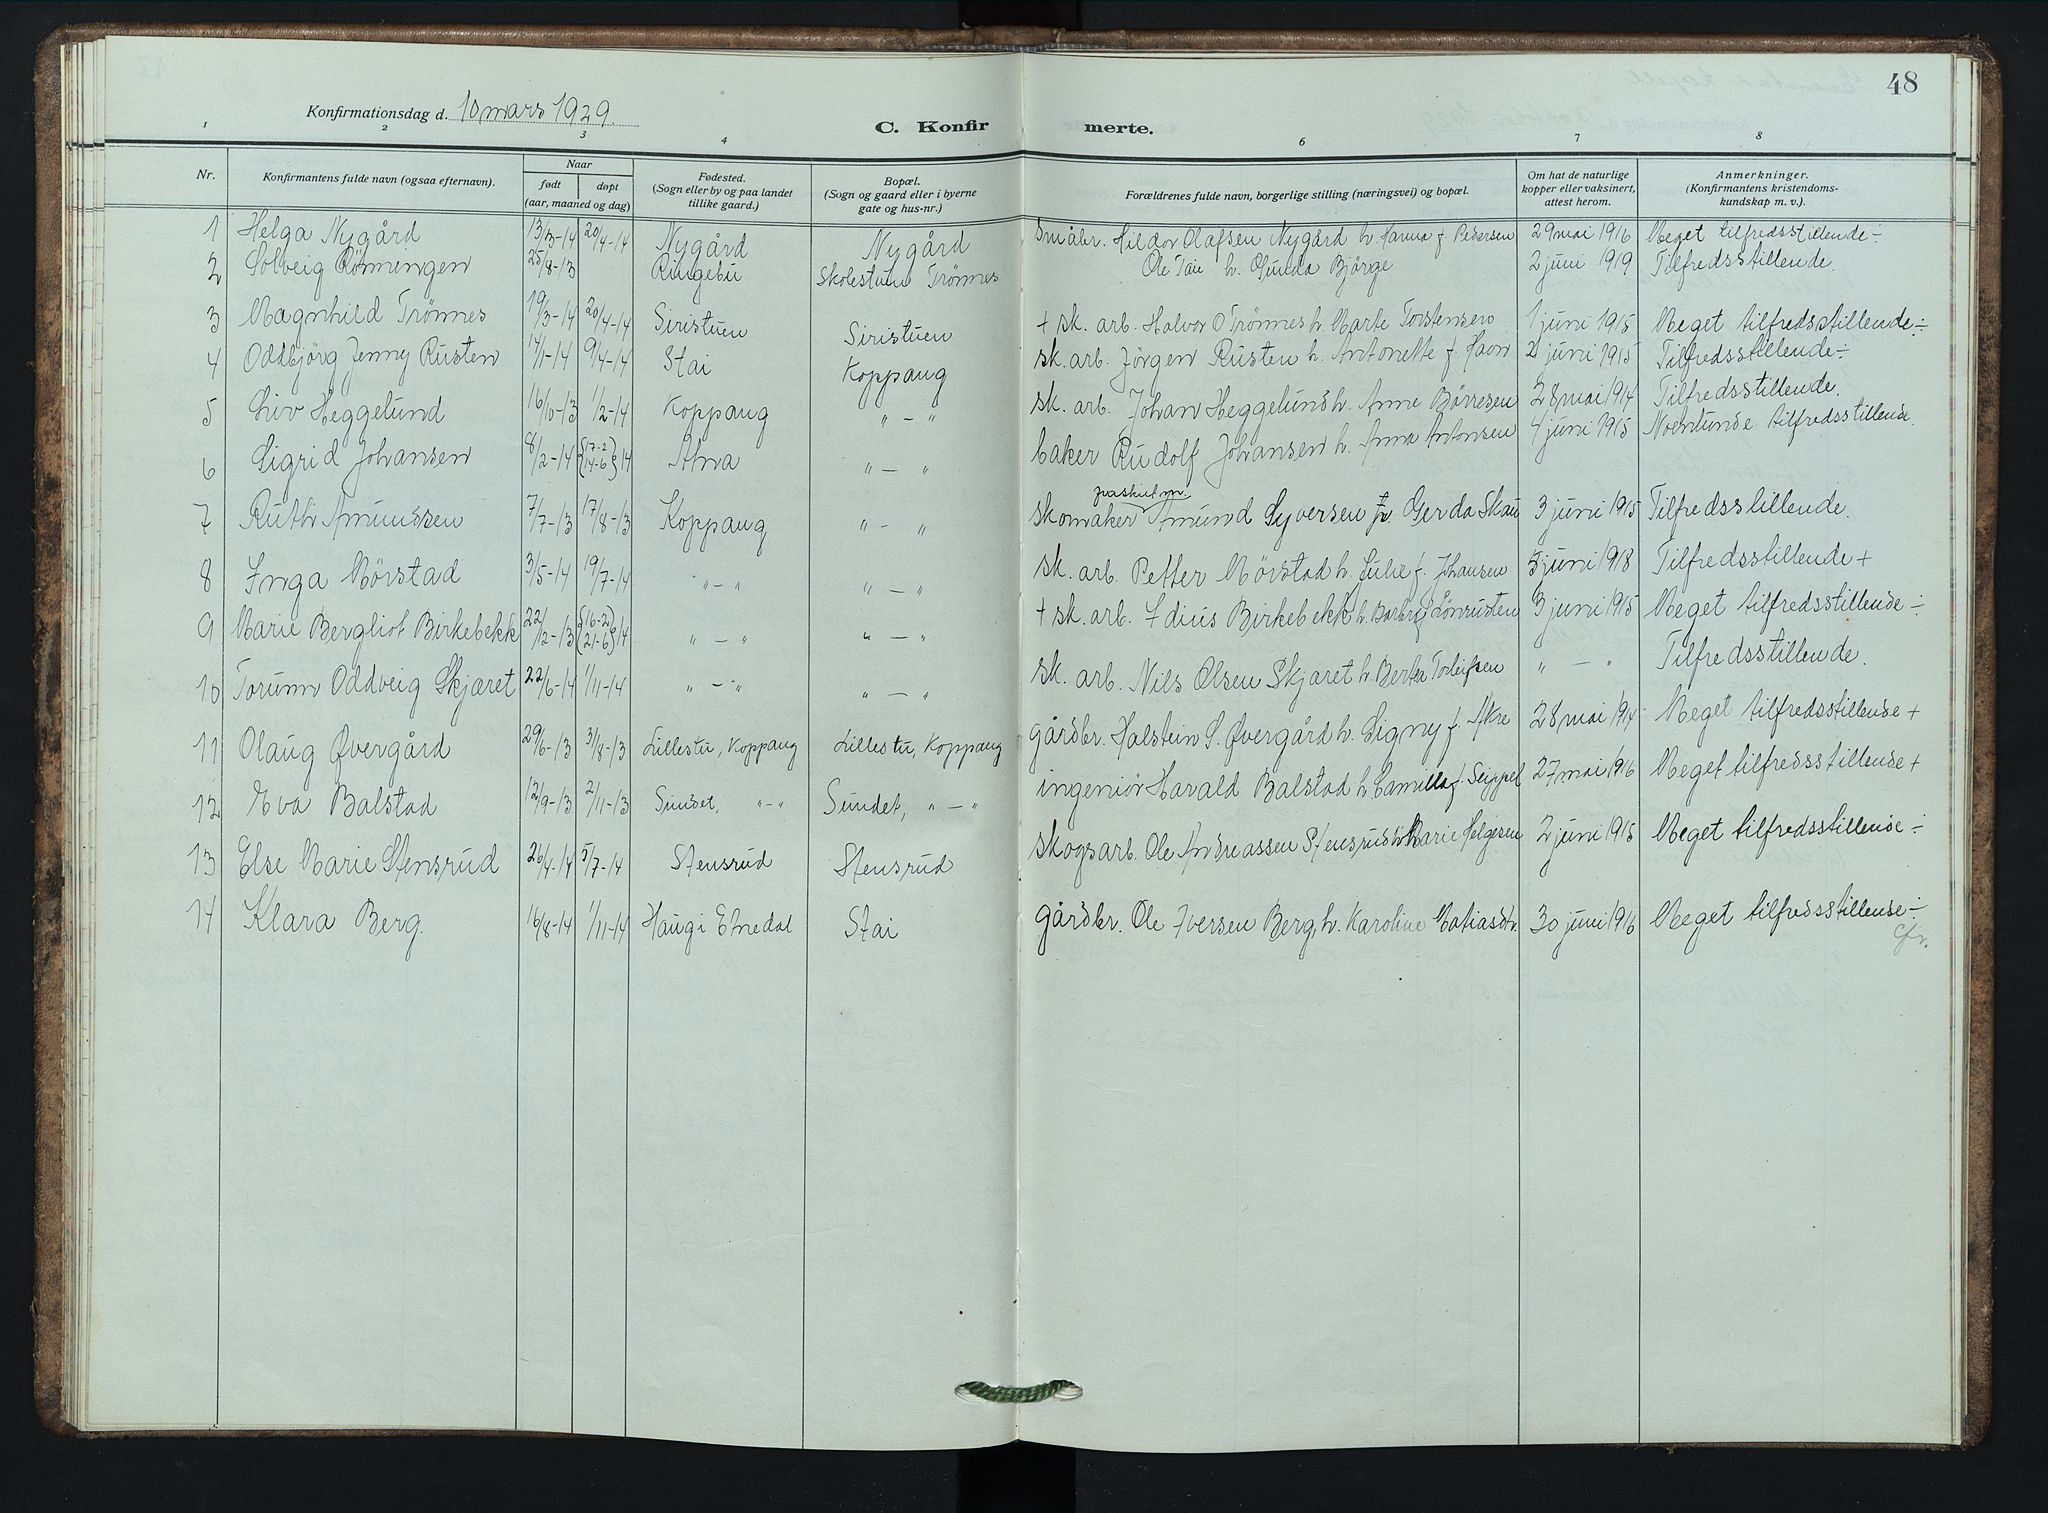 48
Konfirmationsdag d. 10 mars 1929.
C. Konfirmerte.
1 2 3 4 6 7 8
Nr. Konfirmantens fulde navn (ogsaa efternavn). Naar født døpt (aar, maaned og dag) Fødested. (Sogn eller by og paa landet tillike gaard.) Bopæl. (Sogn og gaard eller i byerne gate og hus-nr.) Forældrenes fulde navn, borgerlige stilling (næringsvei) og bopæl. Om hat de naturlige kopper eller vaksinert, attest herom. Anmerkninger. (Konfirmantens kristendomskundskap m. v.).
1 Helga Nygård 13/3-14 20/4-14 Nygård Nygård Småbr. Hildor Olafsen Nygård h. Hanna f. Pedersen 29 mai 1916 Meget tilfredsstillende ÷
2 Solveig Rönningen 25/8-13 Ringebu Skolestuen Trönnes Ole Taie h. Gunda Bjørge 2 juni 1919 Tilfredsstillende.
3 Magnhild Trönnes 19/3-14 20/4-14 Siristuen Siristuen + sk. arb. Halvor O Trönnes h. Marte Torstensen 1 juni 1915 Meget tilfredsstillende ÷
4 Oddbjörg Jenny Rusten 14/1-14 9/4-14 Stai Koppang sk. arb. Jörgen Rusten h. Antonette f. 2 juni 1915 Tilfredsstillende ÷
5 Liv Heggelund 16/10-13 1/2-14 Koppang " - " sk. arb. Johan Heggelund h. Anne Børresen 28 mai 1914 Tilfredsstillende.
6 Sigrid Johansen 8/2-14 {17-2 14-6} 14 Atna " - " baker Rudolf Johansen h. Anna Antonsen 4 juni 1915 Noenlunde tilfredsstillende.
7 Ruth Amundsen 7/7-13 17/8-13 Koppang " - " skomaker Amund Syversen fr. Gerda Skau 3 juni 1915 Tilfredsstillende.
8 Inga Mörstad 3/5-14 19/7-14 " - " " - " sk. arb. Petter Mörstad h. Julie f. Johansen juni 1918 Tilfredsstillende +
9 Marie Bergliot Birkebekk 22/12-13 {16-2 21-6} 14 " - " " - " + sk. arb. Birkebekk h. Barbro Lönrusten 3 juni 1915 Meget tilfredsstillende ÷
10 Torunn Oddveig Skjæret 22/6-14 1/11-14 " - " " - " sk. arb. Nils Olsen Skjæret h. Berta Torleifsen " - " Tilfredsstillende.
11 Olaug Øvergård 29/6-13 3/8-13 Lillestu, Koppang Lillestu, Koppang gårdbr. Halstein S. Øvergård h. Signy f. Akre 28 mai 1914 Meget tilfredsstillende +
12 Eva Balstad 12/9-13 2/11-13 Sundet, " - " Sundet, " - " ingeniør Harald Balstad h. Camilla f. Seippel 27 mai 1916 Meget tilfredsstillende +
13 Else Marie Stensrud 26/4-14 5/7-14 Stensrud Stensrud skogsarb. Ole Andreassen Stensrud h. Marie Helgesen 2 juni 1915 Meget tilfredsstillende ÷
14 Klara Berg. 16/8-14 1/11-14 Haug i Etnedal Stai gårdbr. Ole Iversen Berg, h. Karoline Matiasdtr. 30 juni 1916 Meget tilfredsstillende ÷